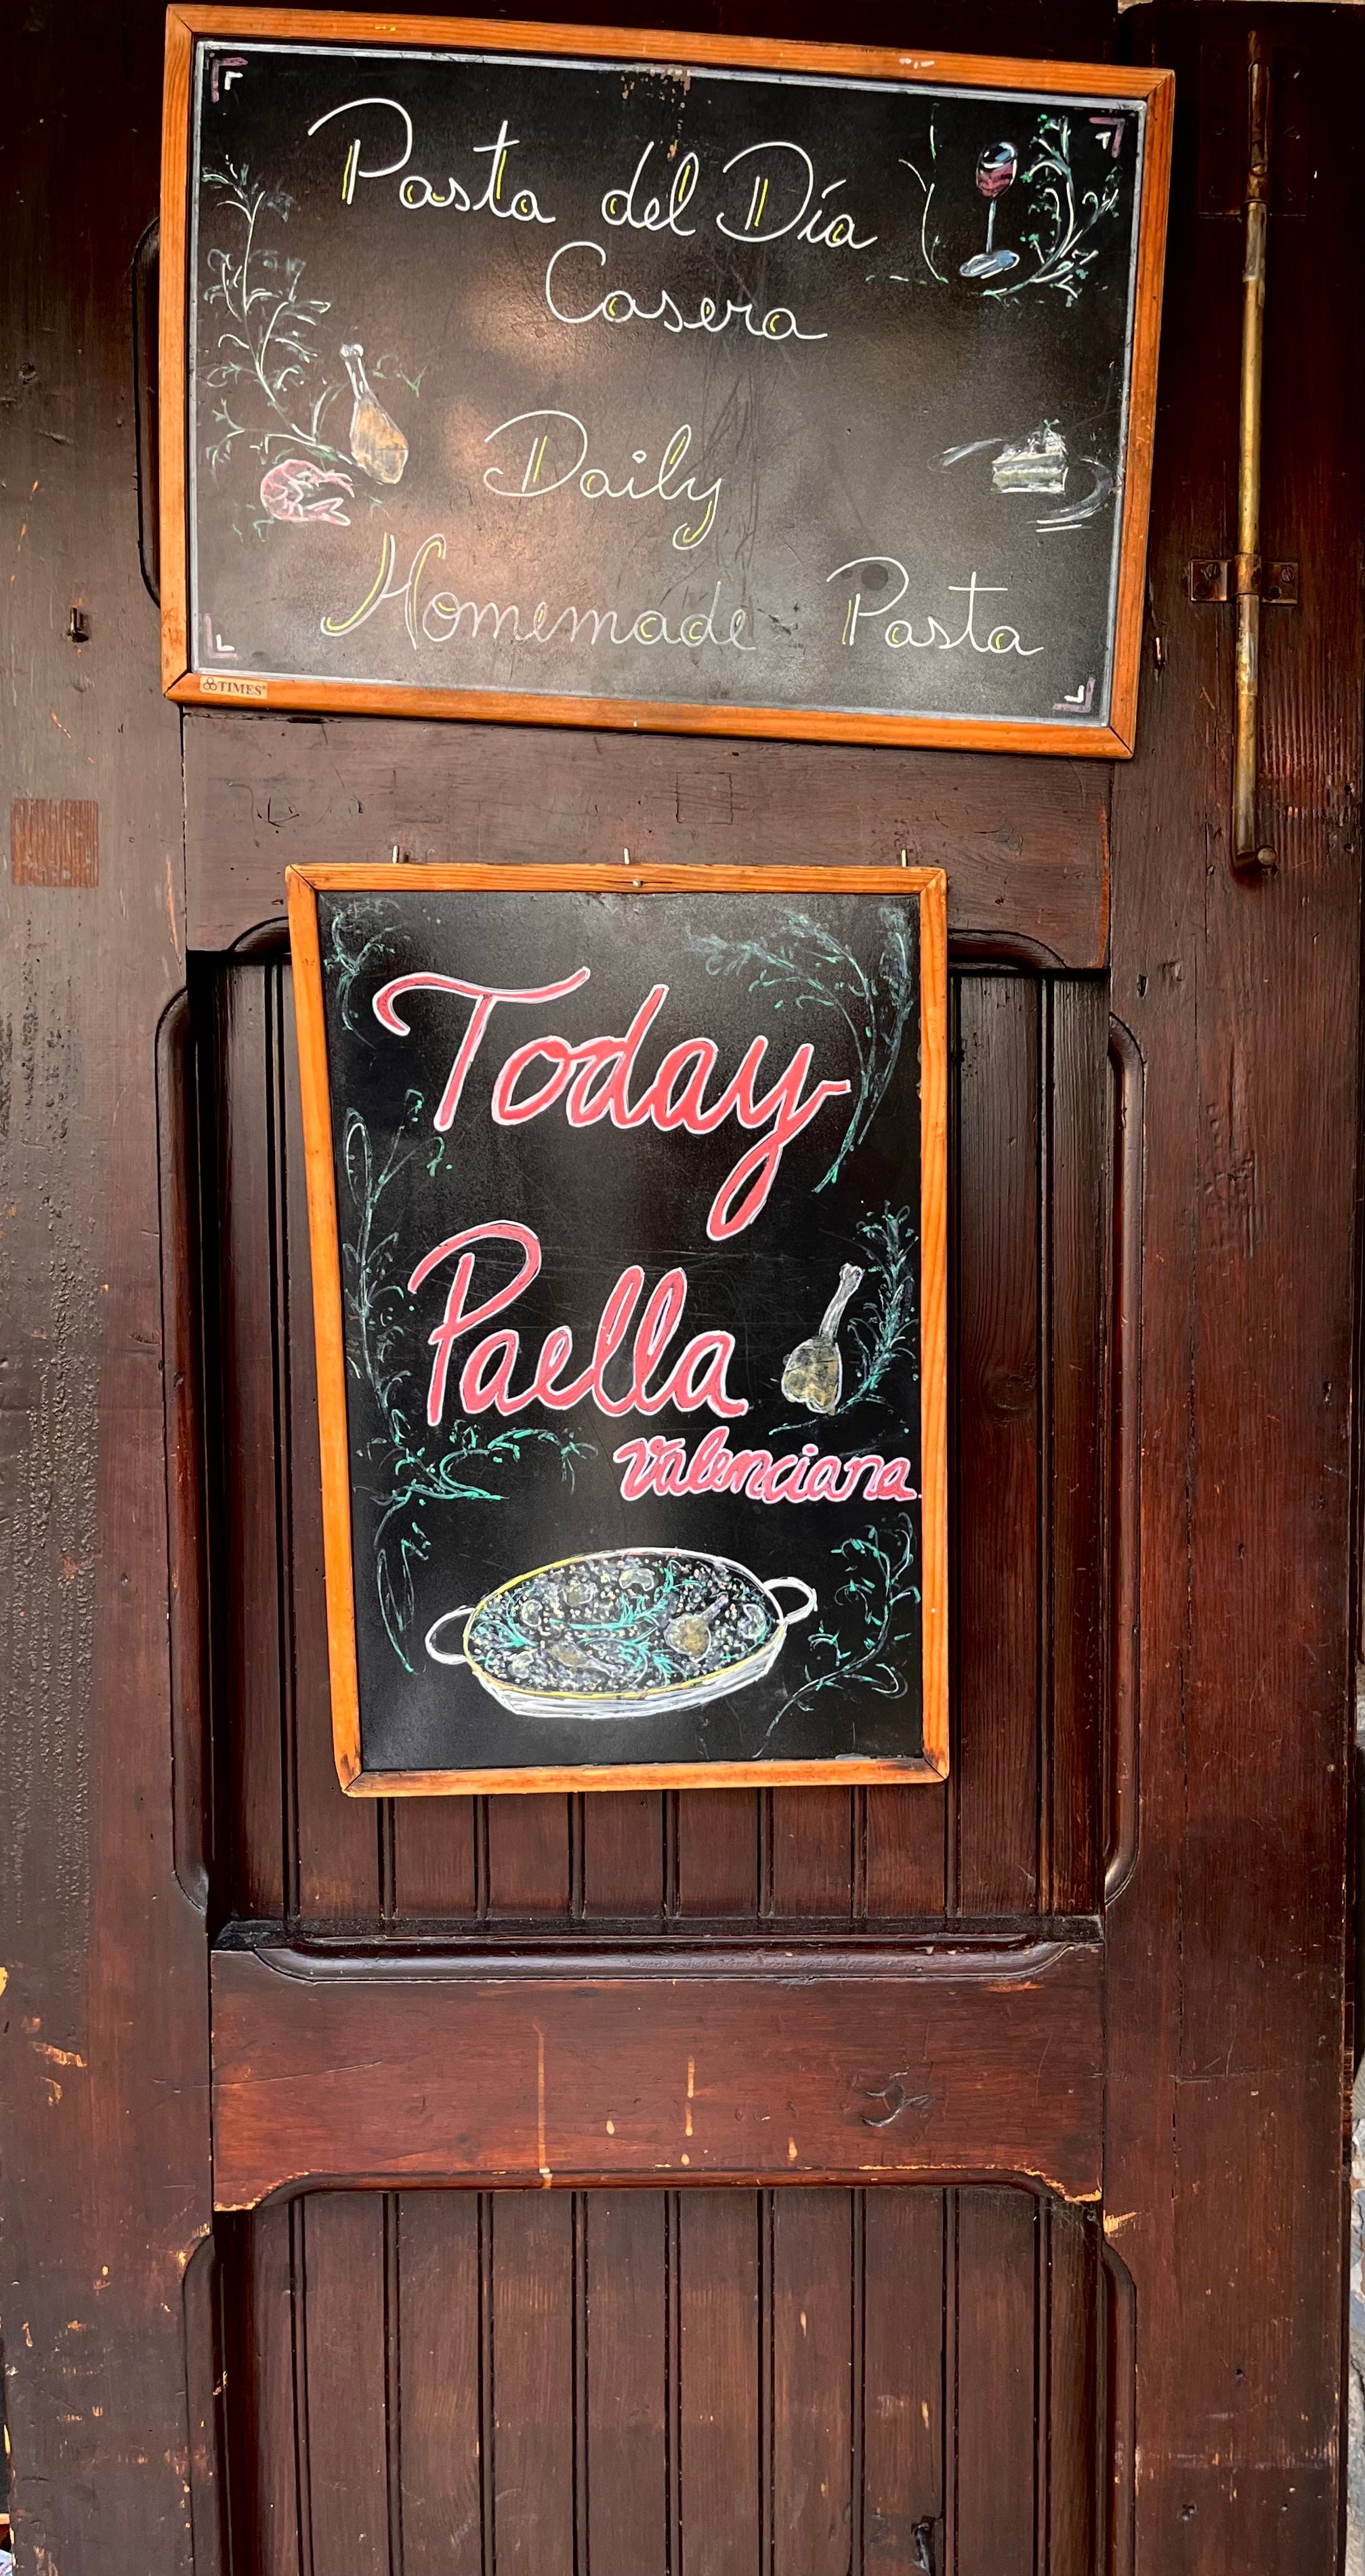 Pasta del Día
Casera
Daily
Homemade Pasta
TIMES
Today
Paella
Valenciana